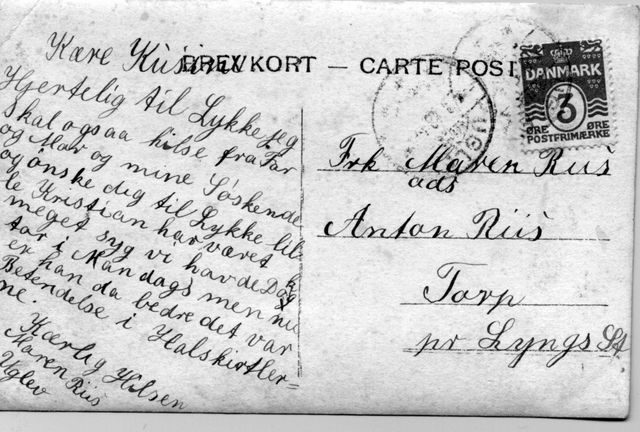 BREVKORT — CARTE POST
Kære Kusine
Hjertelig til Lykke jeg
skal ogsaa hilse fra Far
og Mor og mine Søskende
og ønske dig til Lykke lil-
le Kristian har været
meget syg vi havde Dok
tor i Mandags men nu
er han da bedre det var
Betendelse i Halskirtler-
ne.
Kærlig Hilsen
Maren Riis
Uglev
DANMARK
3
ØRE ØRE
POSTFRIMÆRKE
Frk Maren Riis
ads
Anton Riis
Torp
pr Lyngs St